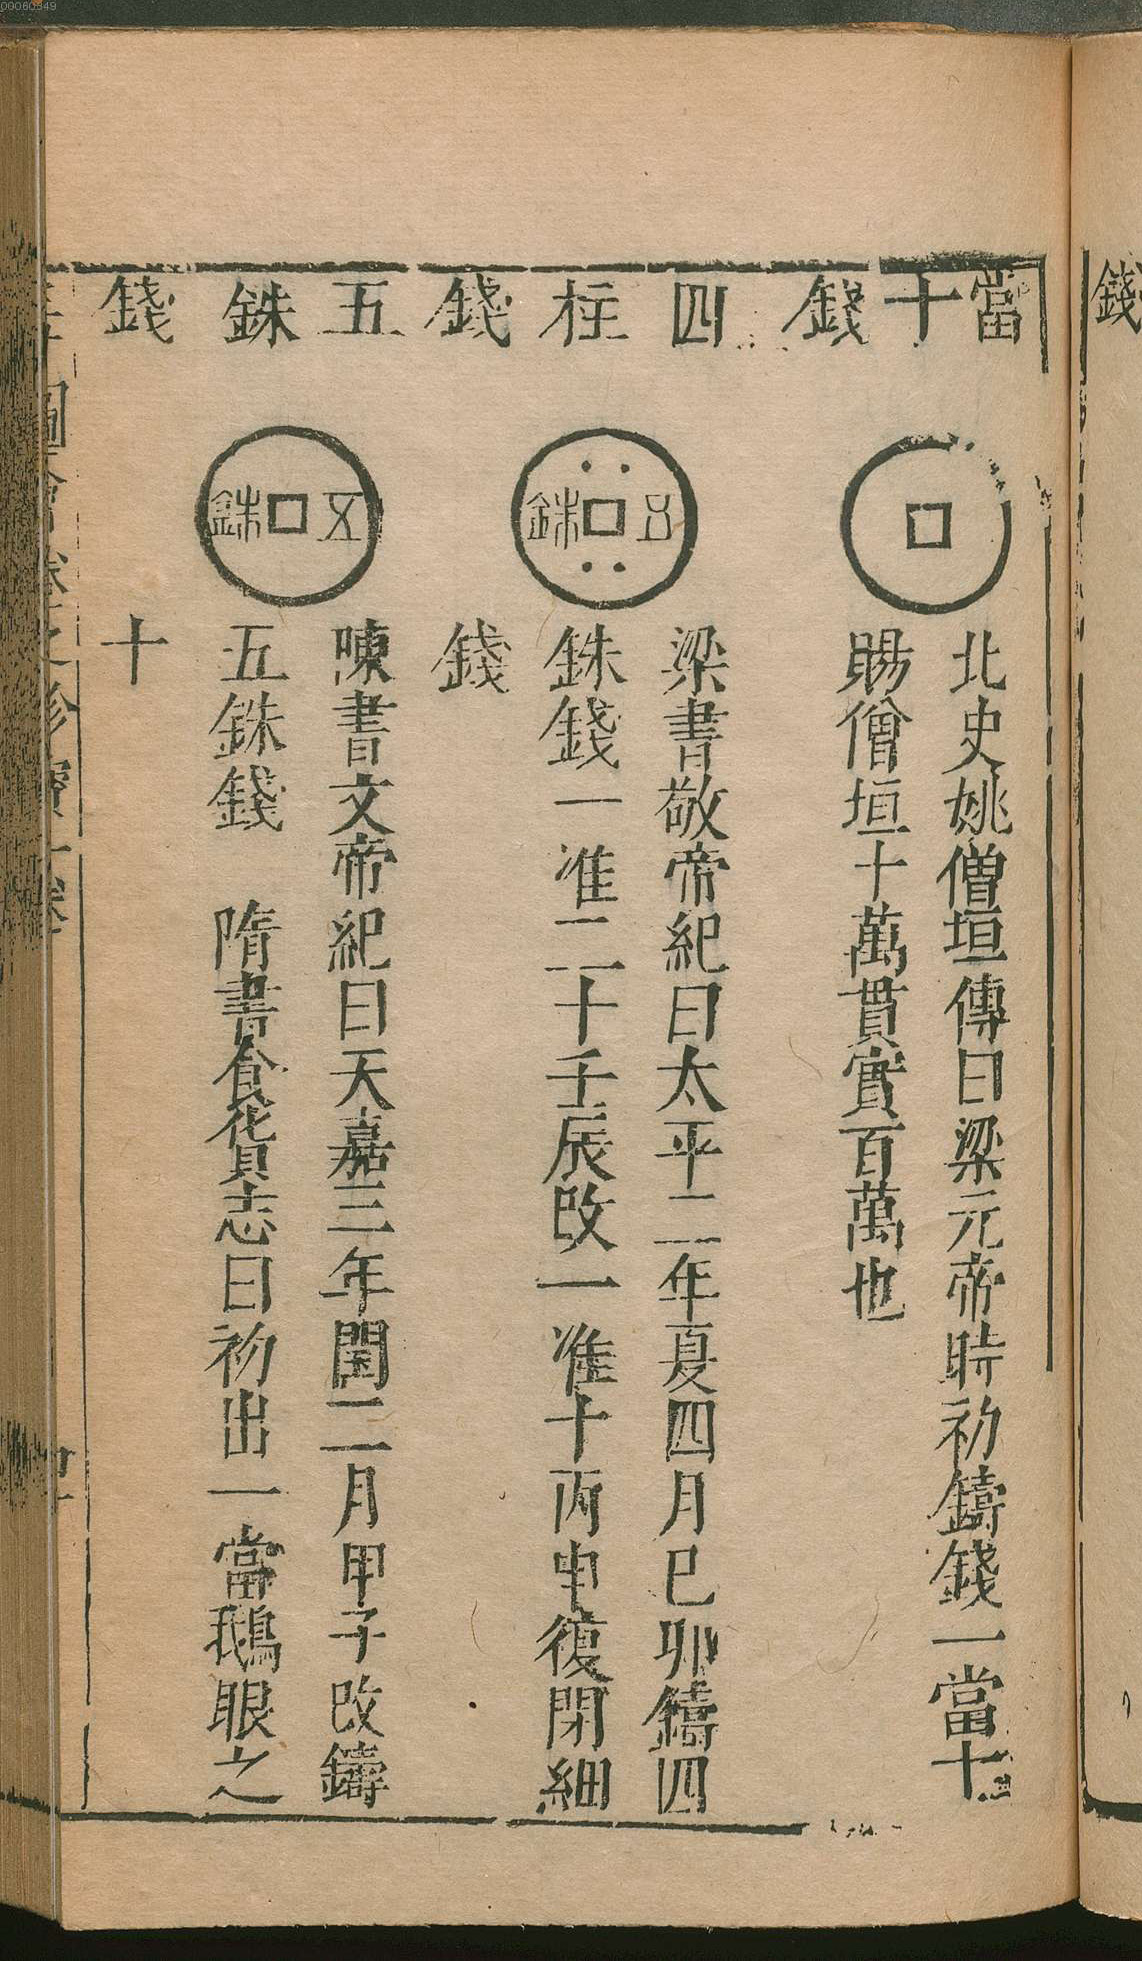 00060549
錢
當十錢
北史姚僧垣傳曰梁元帝時初鑄錢一當十
賜僧垣十萬貫實百萬也
四柱錢
五銖
梁書敬帝紀曰太平二年夏四月己卯鑄四
銖錢一准二十壬辰改一准十丙申復閉細
錢
五銖錢
五銖
陳書文帝紀曰天嘉三年閏二月甲子改鑄
五銖錢 隋書食貨志曰初出一當鵝眼之
十
圖會
珍寶一卷